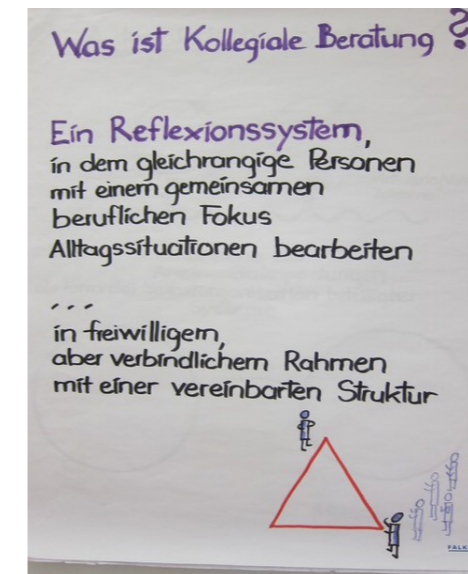 Was ist Kollegiale Beratung ?
Ein Reflexionssystem,
in dem gleichrangige Personen
mit einem gemeinsamen
beruflichen Fokus
Alltagssituationen bearbeiten
...
in freiwilligem,
aber verbindlichem Rahmen
mit einer vereinbarten Struktur